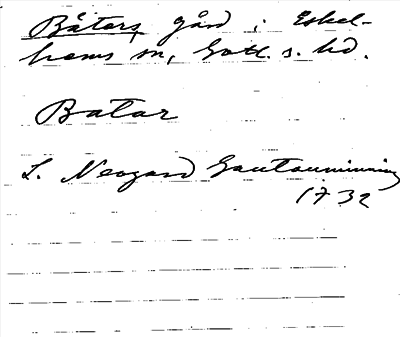 Båtars, gård i Eskel-
hems sn, Gotl. s. hd.
Batar
L. Neogard Gautauminning
1732